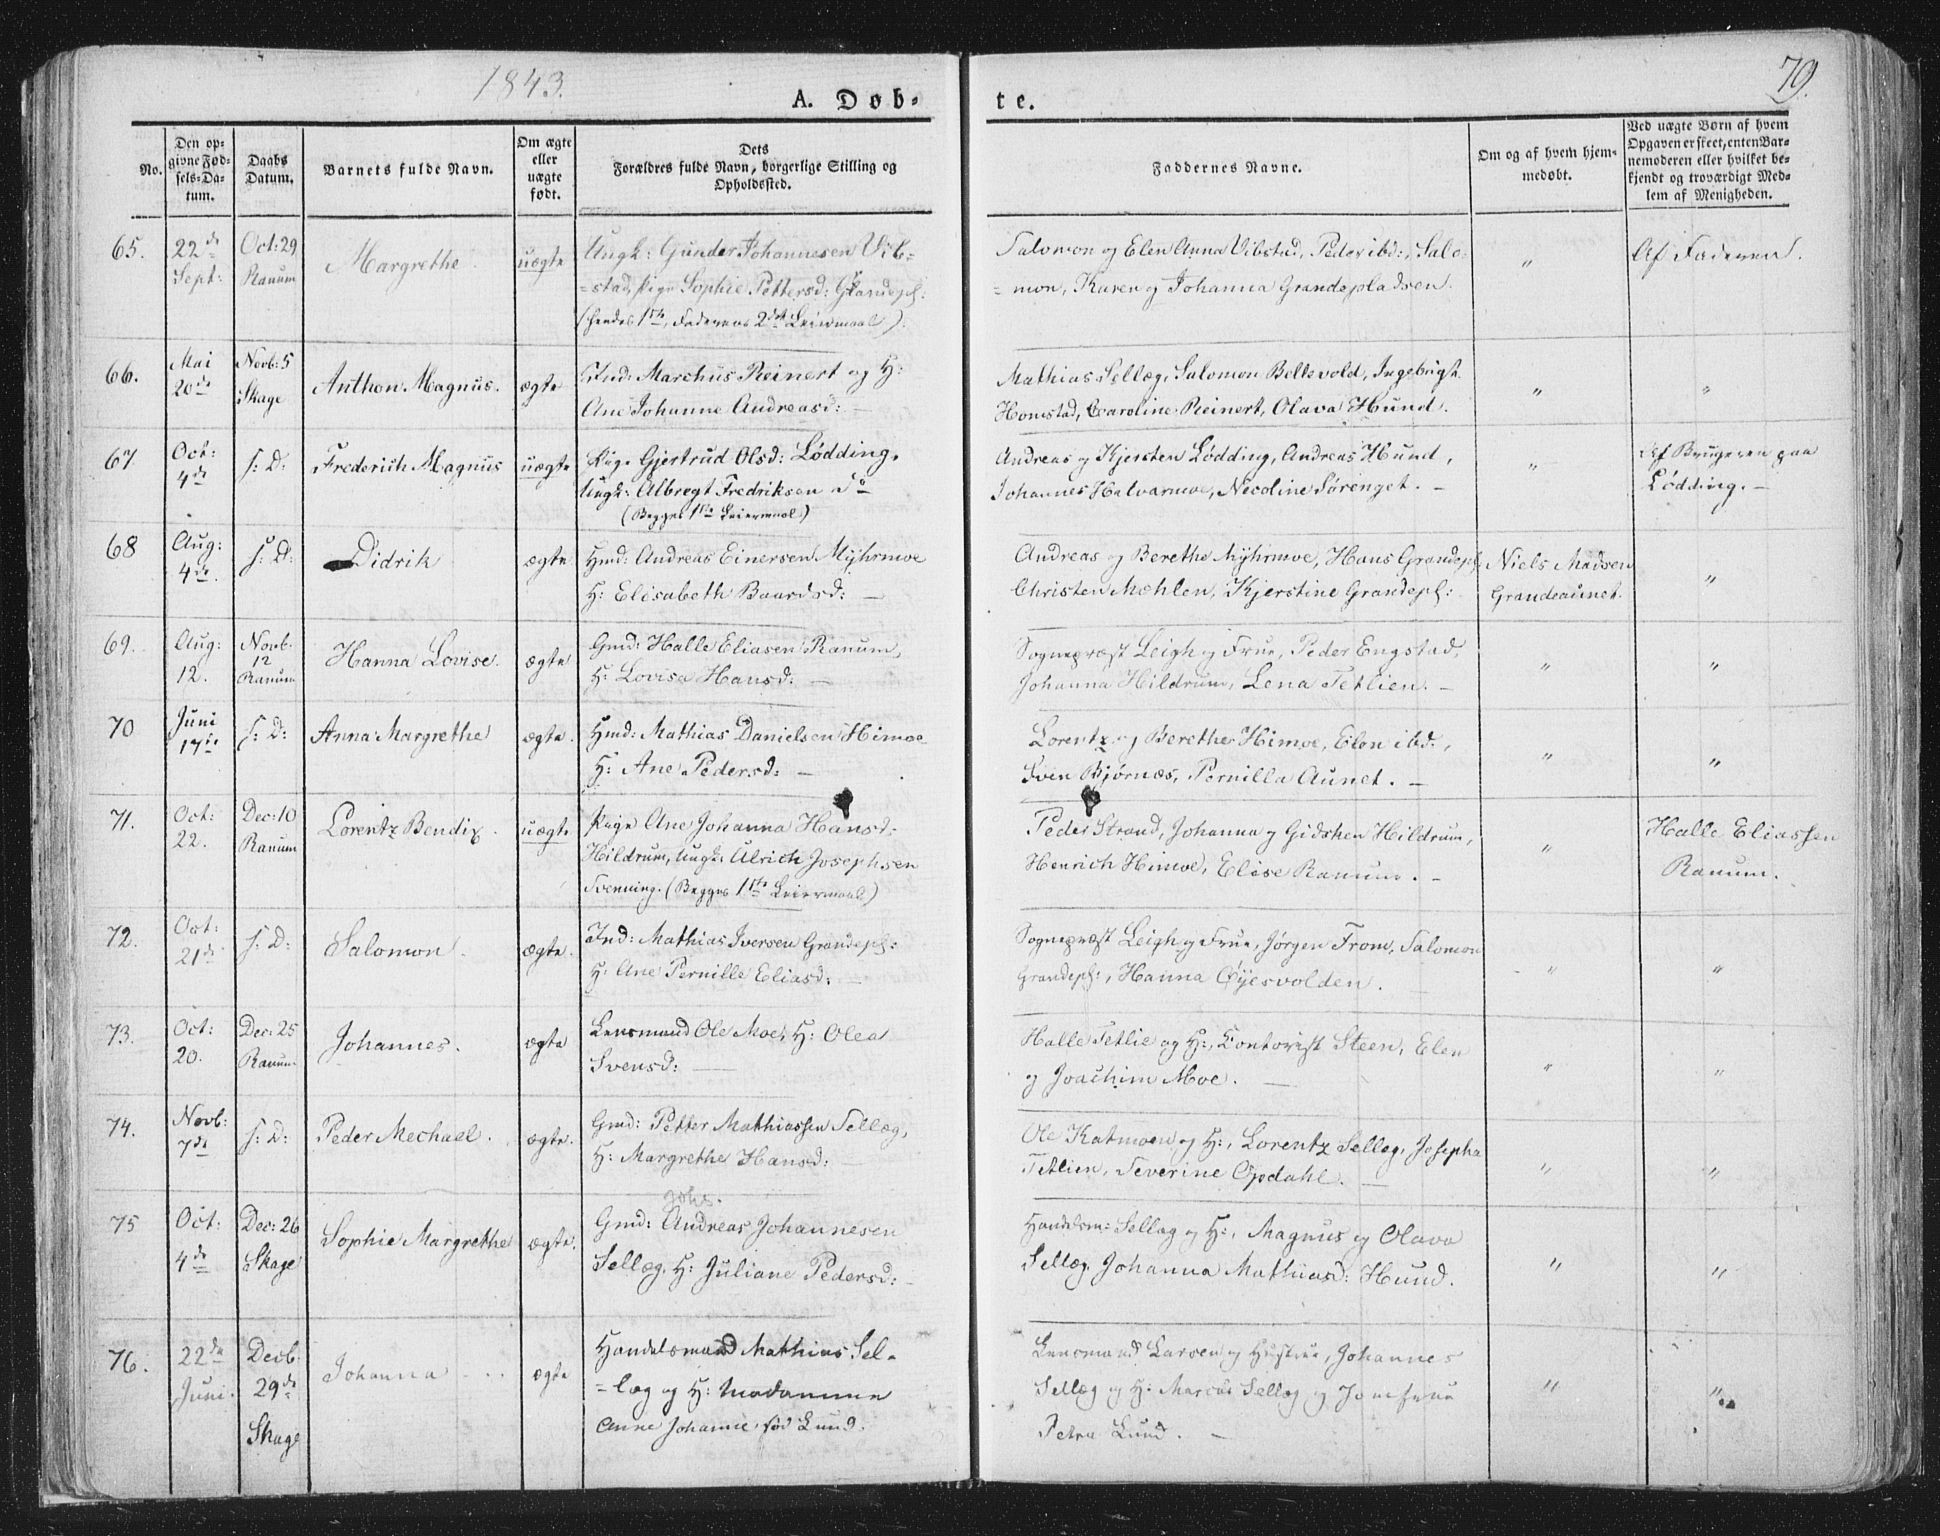 1843.
A. Døb-
te.
79.
No.
Den op-
givne Fød-
sels-Da-
tum.
Daabs
Datum.
Barnets fulde Navn.
Om ægte
eller
uægte
født.
Dets
Forældres fulde Navn, borgerlige Stilling og
Opholdssted.
Faddernes Navne.
Om og af hvem hjem-
medøbt.
Ved uægte Børn af hvem
Opgaven er skeet, enten Bar-
nemoderen eller hvilket be-
kjendt og troværdigt Med-
lem af Menigheden.
65.
22de
Sept:
Oct: 29
Ranum
Margrethe
uægte
Ungk: Gunder Johannesen Vib-
=stad, Pige Sophie Pettersd: Grandepl:
(hendes 1ste, Faderens 2det Leiermaal).
Salomon og Elen Anna Vibstad, Peder ibd:, Salo-
=mon, Karen og Johanna Grandepladsen.
"
Af Faderen.
66.
Mai
20de
Novb: 5
Skage
Anthon Magnus.
ægte
Ind: Marchus Reinert og H:
Ane Johanne Andreasd: —
Mathias Sellæg, Salomon Bellevold, Ingebrigt
Homstad, Caroline Reinert, Olava Hund.
"
"
67
Oct:
4de
s: D:
Frederich Magnus
uægte
Pige Gjertrud Olsd: Lødding,
Ungk: Albregt Fredriksen do
(Begges 1ste Leiermaal)
Andreas og Kjersten Lødding, Andreas Hund,
Johannes Halvarmoe, Nicoline Sørenget. —
"
Af Brugeren paa
Lødding. —
68
Aug:
4de
s: D:
Didrik
ægte
Hmd: Andreas Einersen Myhrmoe
H: Elisabeth Baardsd: —
Andreas og Berethe Myhrmoe, Hans Grandepl:
Christen Mohlen, Kjerstine Grandepl:
Niels Madsen
Grandeaunet.
"
69.
Aug:
12.
Novb.
12
Ranum
Hanna Lovise.
ægte
Gmd: Halle Eliasen Ranum,
H: Lovisa Hansd: —
Sognepræst Leigh og Frue, Peder Engstad,
Johanna Hildrum, Lena Tetlien. —
"
"
70
Juni
17de
s: D:
Anna Margrethe
ægte.
Hmd: Mathias Danielsen Himoe
H: Ane Pedersd: —
Lorentz og Berethe Himoe, Elen ibd:,
Sven Bjørnæs, Pernilla Aunet. —
"
"
71.
Oct:
22.
Dec: 10
Ranum
Lorentz Bendix.
uægte
Pige Ane Johanna Hansd:
Hildrum, Ungk: Ulrich Josephsen
Svenning. (Begges 1ste Leiermaal)
Peder Strand, Johanna og Gidsken Hildrum,
Henrich Himoe, Elise Ranum. —
"
Halle Eliassen
Ranum.
72.
Oct:
21de
s: D:
Salomon.
ægte.
Ind: Mathias Iversen Grandepl:
H: Ane Pernille Eliasd: —
Sognepræst Leigh og Frue, Jørgen From, Salomon
Grandepl:, Hanna Øyesvolden.
"
"
73.
Oct:
20.
Dec: 25
Ranum
Johannes.
ægte
Lensmand Ole Moe, H: Olea
Svensd: —
Halle Tetlie og H:, Contorist Steen, Elen
og Joachim Moe. —
"
"
74.
Novb:
7de
s: D:
Peder Mechael.
ægte.
Gmd: Petter Mathiassen Sellæg,
H: Margrethe Hansd: —
Ole Katmoen og H:, Lorentz Sellæg, Josepha
Tetlien, Severine Opdahl. —
"
"
75
Oct:
4de
Dec: 26
Skage
Sophie Margrethe
ægte.
Johs.
Gmd: Andreas Johannesen
Sellæg, H: Juliane Pedersd: —
Handelsm: Sellæg og H:, Magnus og Olava
Sellæg, Johanna Mathiasd: Hund.
"
"
76.
22de
Juni.
Decb.
29de
Skage
Johanna
ægte
Handelsmand Mathias Sel-
=læg og H: Madamme
Anne Johanne, fød Lund.
Lensmand Larsen og Hustrue, Johannes
Sellæg og H: Marcus Sellæg og Jomfrue
Petra Lund. —
"
"